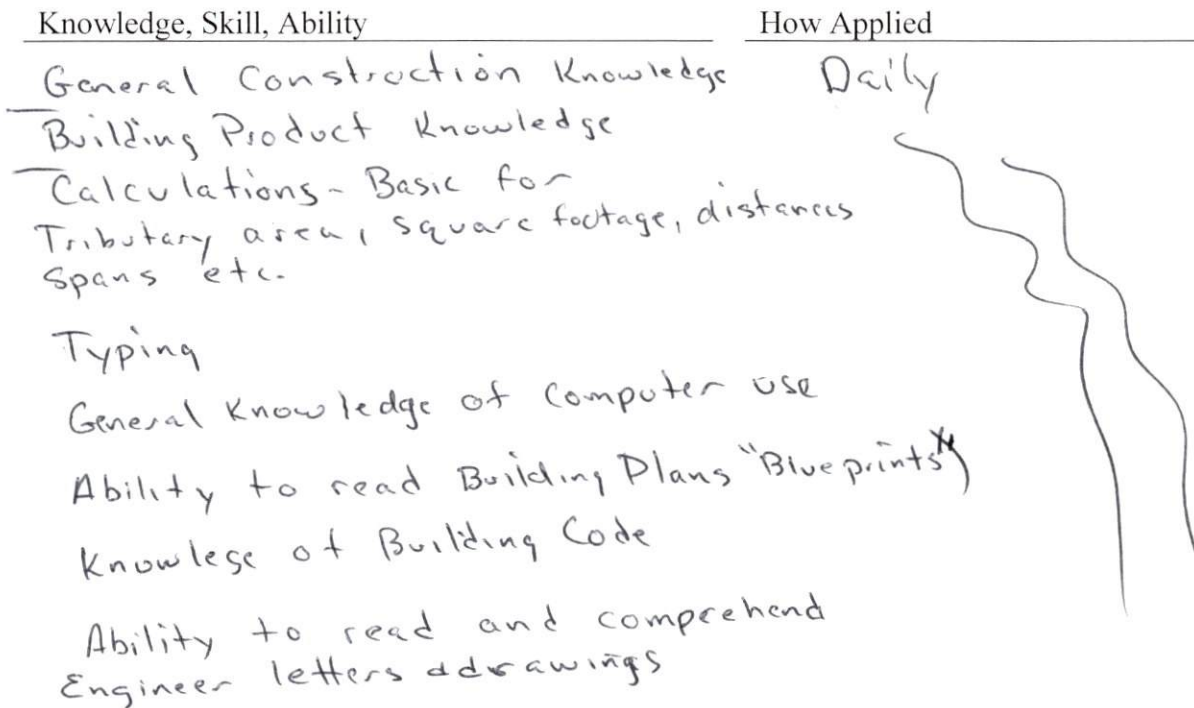 Knowledge, Skill, Ability How Applied
General Construction Knowledge Daily
Building Product Knowledge
Calculations - Basic for
Tributary area, square footage, distances
Spans etc.
Typing
General Knowledge of computer use
Ability to read Building Plans "Blueprints"
Knowlege of Building Code
Ability to read and comprehend
Engineer letters & drawings